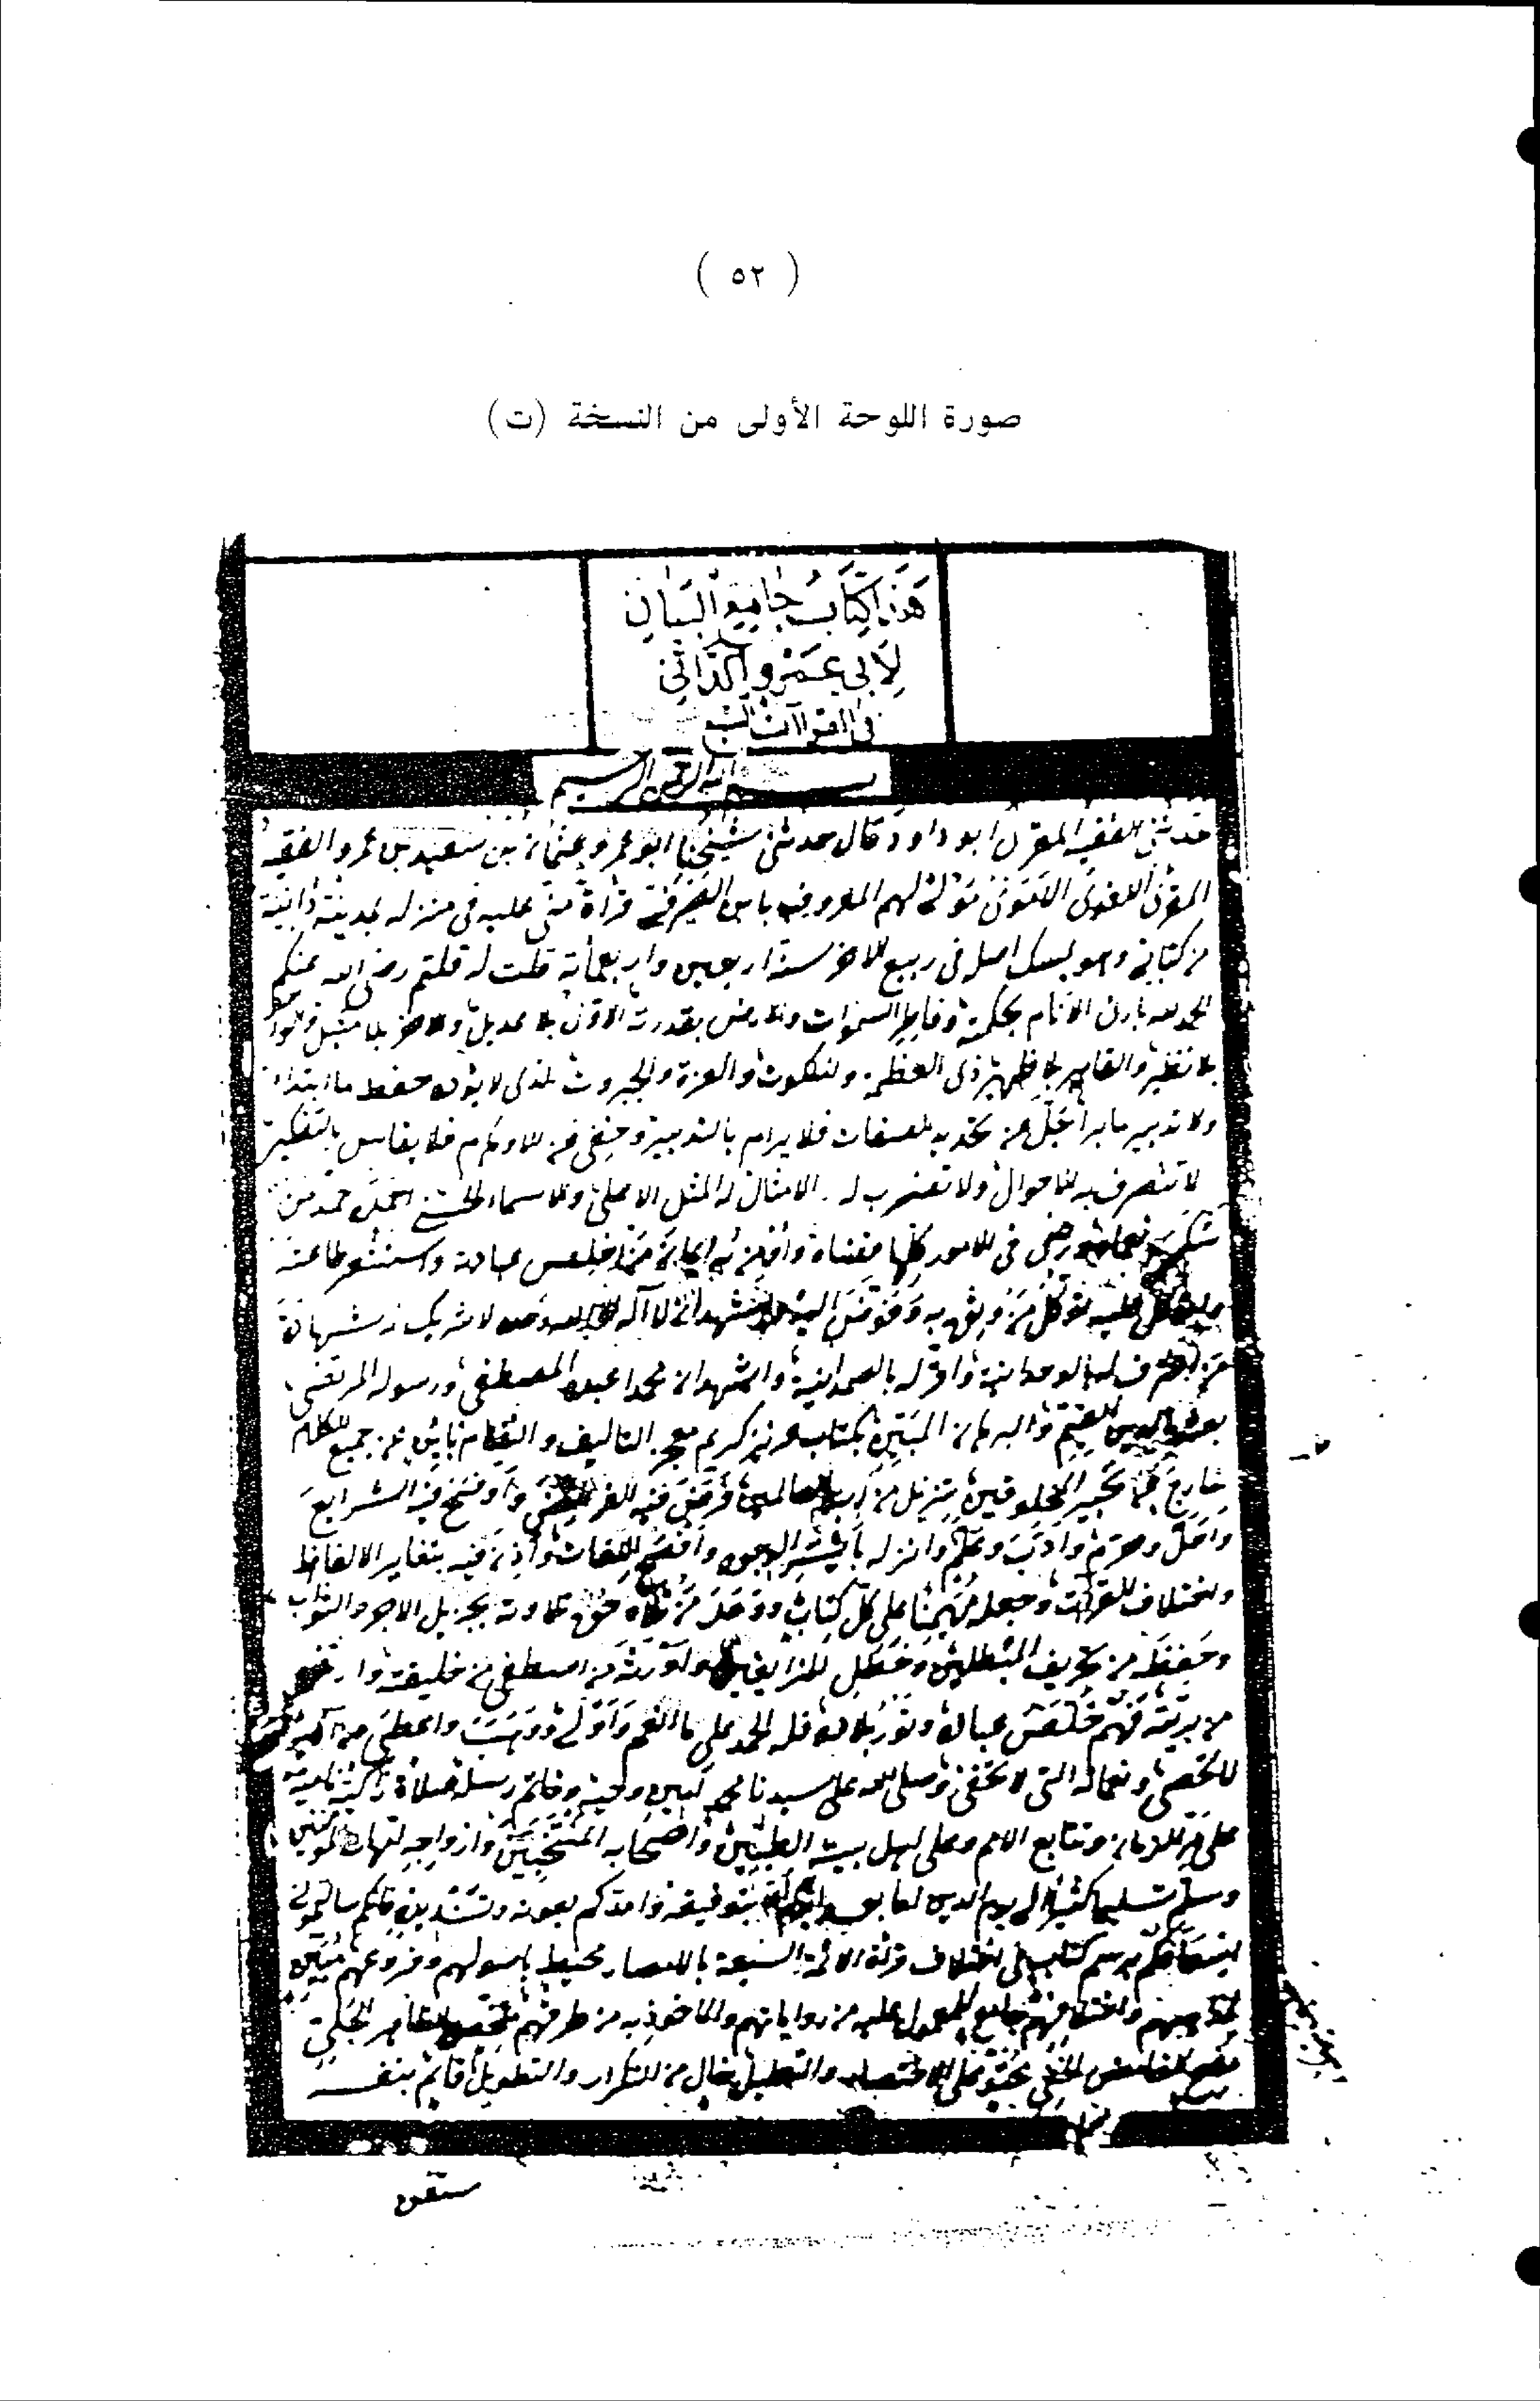 ( ٥٢ )
صورة اللوحة الأولى من النسخة (ت)
هَذَا كِتَابُ جَامِعِ الْبَيَانِ
لِأَبِي عَمْرٍو الدَّانِي
فى القراآت السبع
بسم الله الرحمن الرحيم
حدثنى الفقيه المقرئ ابو داود قال حدثنى شيخنا ابو عمرو عثمان بن سعيد بن عمرو الفقيه
المقرئ اللغوى المعروف بابن الصيرفى قراة منى عليه فى منزله بمدينة دانية
من كتابى وهو يمسك اصله فى ربيع الاخر سنة اربعين واربعماية قلت له قلتم رضى الله عنكم
الحمد لله بارئ الانام بحكمته وفاطر السموات والارض بقدرته الاول بلا عديل والاخر بلا مثيل
بلا نظير والقاهر بلا ظهير ذى العظمة والملكوت والعزة والجبروت الذى لا يؤده حفظ ما ابتدا
ولا تدبير ما برا جل عن تحديد الصفات فلا يرام بالتدبير وخفى عن الاوهام فلا يقاس بالتفكير
لا تتصرف به الاحوال ولا تضرب له الامثال له المثل الاعلى والاسماء الحسنى احمده حمد من
شكر نعماه ورضى فى الامور كلها قضاه وأومن به ايمان من اخلص عبادته واستشعر طاعته
عليه توكل من وثق به وفوض اليه واشهد ان لا اله الا الله وحده لا شريك له شهادة
من اعترف له بالوحدانية واقر له بالصمدانية واشهد ان محمدا عبده المصطفى ورسوله المرتضى
بعثه بالدين القيم والبرهان المبين بكتاب عزيز كريم معجز التاليف والنظام باين عن جميع الكلام
خارج عن تحبير المخلوقين تنزيل من رب العالمين فرض فيه الفرائض وأوضح فيه الشرايع
وأحل وحرم وأدب وعلم وانزله بأيسر الوجوه وأفصح اللغات وأذن فيه بتغاير الالفاظ
واختلاف القراآت وجعله مهيمنا على كل كتاب ووعد من تلاه حق تلاوته بجزيل الاجر والثواب
وحفظه من تحريف المبطلين وخطل الزايغين وأورثه من اصطفى من خليقته وارتضى
من بريته فهم خلصة عباده ونور بلاده فله الحمد على ما انعم وأولى ووهب واعطى من آلائه
لا تحصى ونعمائه التى لا تخفى وصلى الله على سيدنا محمد امين وحيه وخاتم رسله صلاة زاكية نامية
على مر الازمان وتتابع الامم وعلى اهل بيته الطيبين وأصحابه المنتخبين وأزواجه امهات المؤمنين
وسلم تسليما كثيرا الى يوم الدين اما بعد بتوفيقه وامدكم بعونه وتسديده فانكم سالتمونى
برسم كتاب فى اختلاف قراة الائمة السبعة بالامصار محيط باصولهم وفروعهم مبين
لمذاهبهم واختلافهم جامع للمعمول عليه من رواياتهم والماخوذ به من طرقهم ملخص للظاهر الجلى
للغامض الخفى محتو على الاختصار والتقليل خال من التكرار والتطويل قايم بنفسه